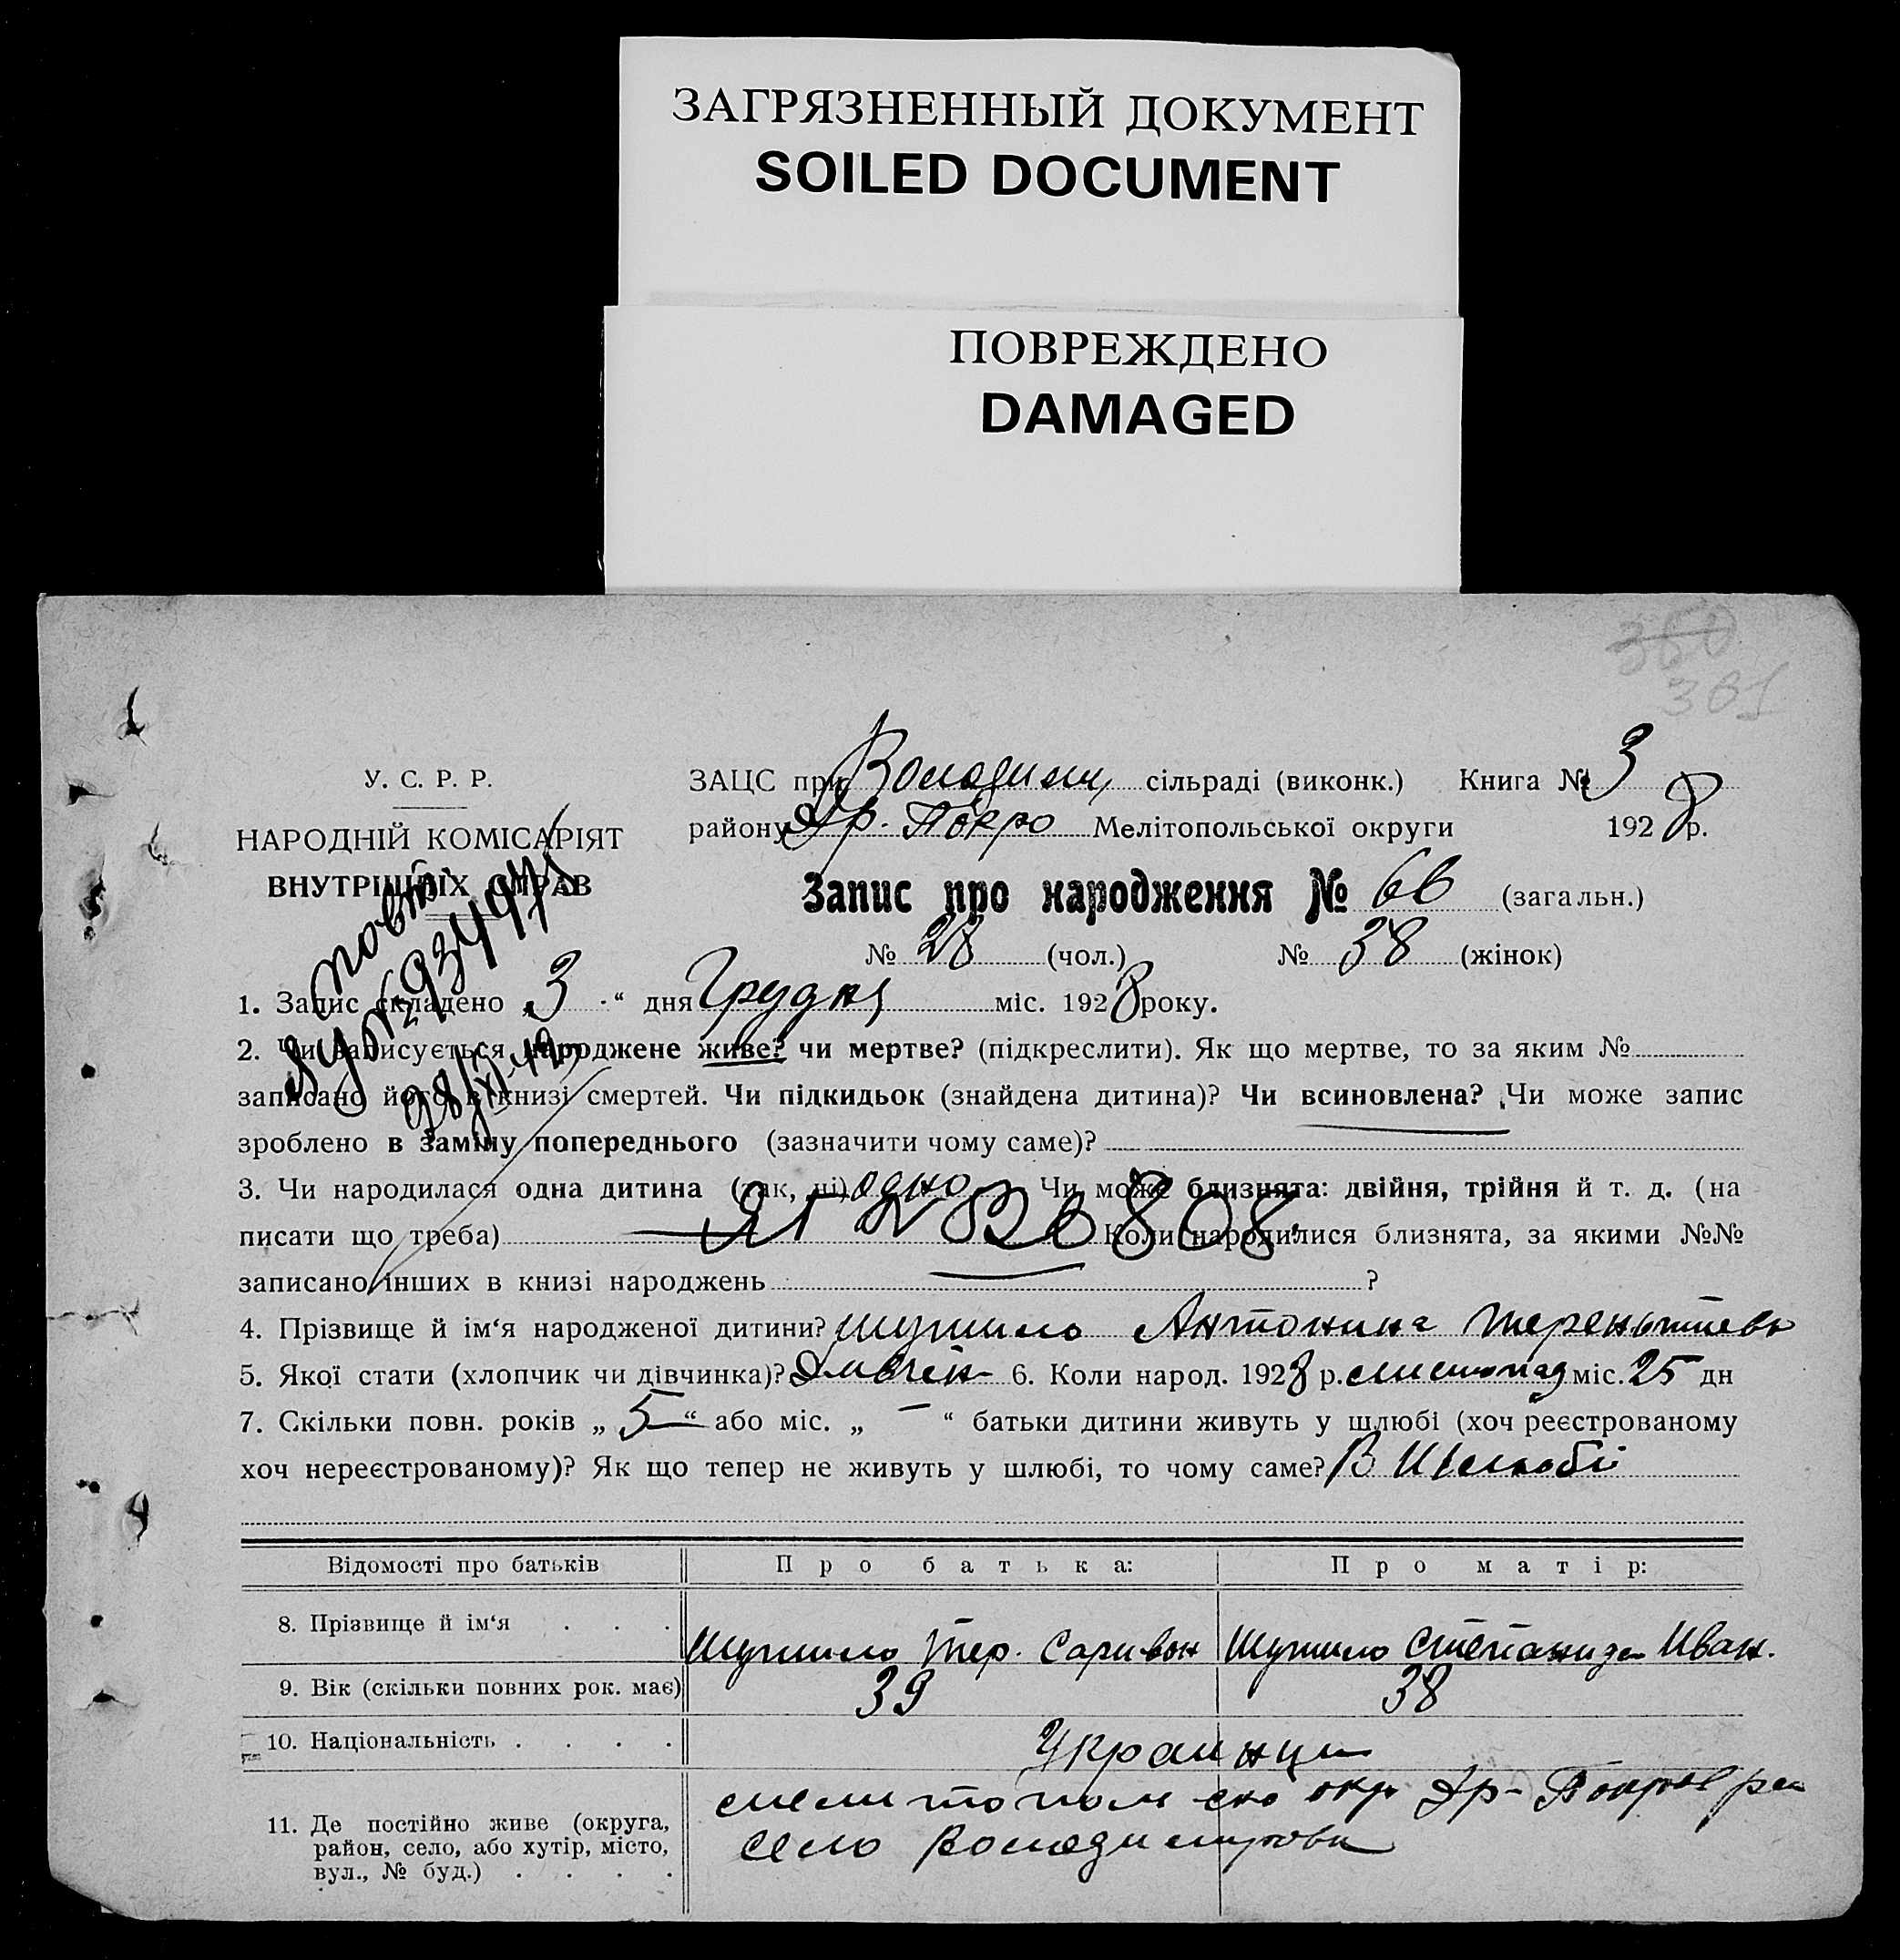 ЗАГРЯЗНЕННЫЙ ДОКУМЕНТ
SOILED DOCUMENT
ПОВРЕЖДЕНО
DAMAGED
360
361
У. С. Р. Р.
НАРОДНІЙ КОМІСАРІЯТ
ВНУТРІШНІХ СПРАВ
ЗАЦС при Володим, сільраді (виконк.) Книга № 3
району Др. Покро Мелітопольської округи 1928 р.
Запис про народження № 66 (загальн.)
№ 28 (чол.) № 38 (жінок)
повт
1. Запис складено „3“ дня Грудня міс. 1928 року.
2. Чи записується народжене живе? чи мертве? (підкреслити). Як що мертве, то за яким №
записано його в книзі смертей. Чи підкидьок (знайдена дитина)? Чи всиновлена? Чи може запис
зроблено в заміну попереднього (зазначити чому саме)?
3. Чи народилася одна дитина (так, ні) одно Чи може близнята: двійня, трійня й т. д. (на
писати що треба) Коли народилися близнята, за якими №№
записано інших в книзі народжень ?
4. Прізвище й ім‘я народженої дитини? Шумило Антонина Терентьевн
5. Якої стати (хлопчик чи дівчинка)? 6. Коли народ. 1928 р. листопад міс. 25 дн
7. Скільки повн. років „ 5 “ або міс. „ – “ батьки дитини живуть у шлюбі (хоч реєстрованому
хоч нереєстрованому)? Як що тепер не живуть у шлюбі, то чому саме? В Шлюбі
Відомості про батьків Про батька: Про матір:
8. Прізвище й ім‘я . . . Шумило Тер. Саривон Шумило Степанида Иван.
9. Вік (скільки повних рок. має) 39 38
10. Національність . . . . Украинци
11. Де постійно живе (округа,
район, село, або хутір, місто,
вул., № буд.) . . . .
мелитополь ско окр Др- Покров ра
село Володимровк